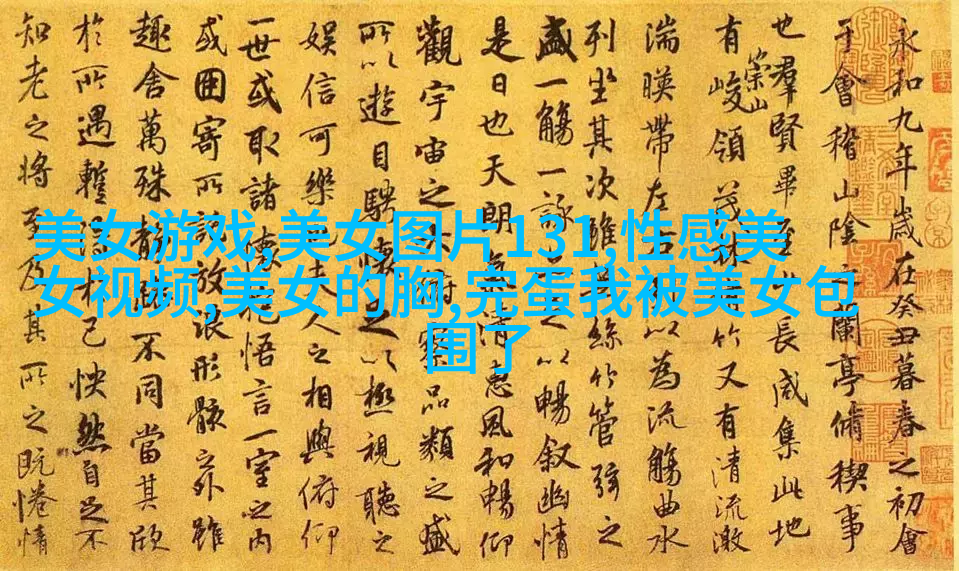 永和九年歲在癸丑暮春之初會
于會稽山陰之蘭亭脩稧事
也羣賢畢至少長咸集此地
有崇山峻領茂林脩竹又有清流激
湍暎帶左右以為流觴曲水
列坐其次雖無絲竹管弦之
盛一觴一詠亦足以暢叙幽情
是日也天朗氣清惠風和暢仰
觀宇宙之大俯察品類之盛
所以遊目騁懷足以極視聽之
娛信可樂也夫人之相與俯仰
一世或取諸懷抱悟言一室之內
或因寄所託放浪形骸之外雖
趣舍萬殊靜躁不同當其欣
於所遇蹔得於己怏然自足不
知老之將至及其所之既惓情
美女游戏,美女图片131,性感美
女视频,美女的胸,完蛋我被美女包
围了